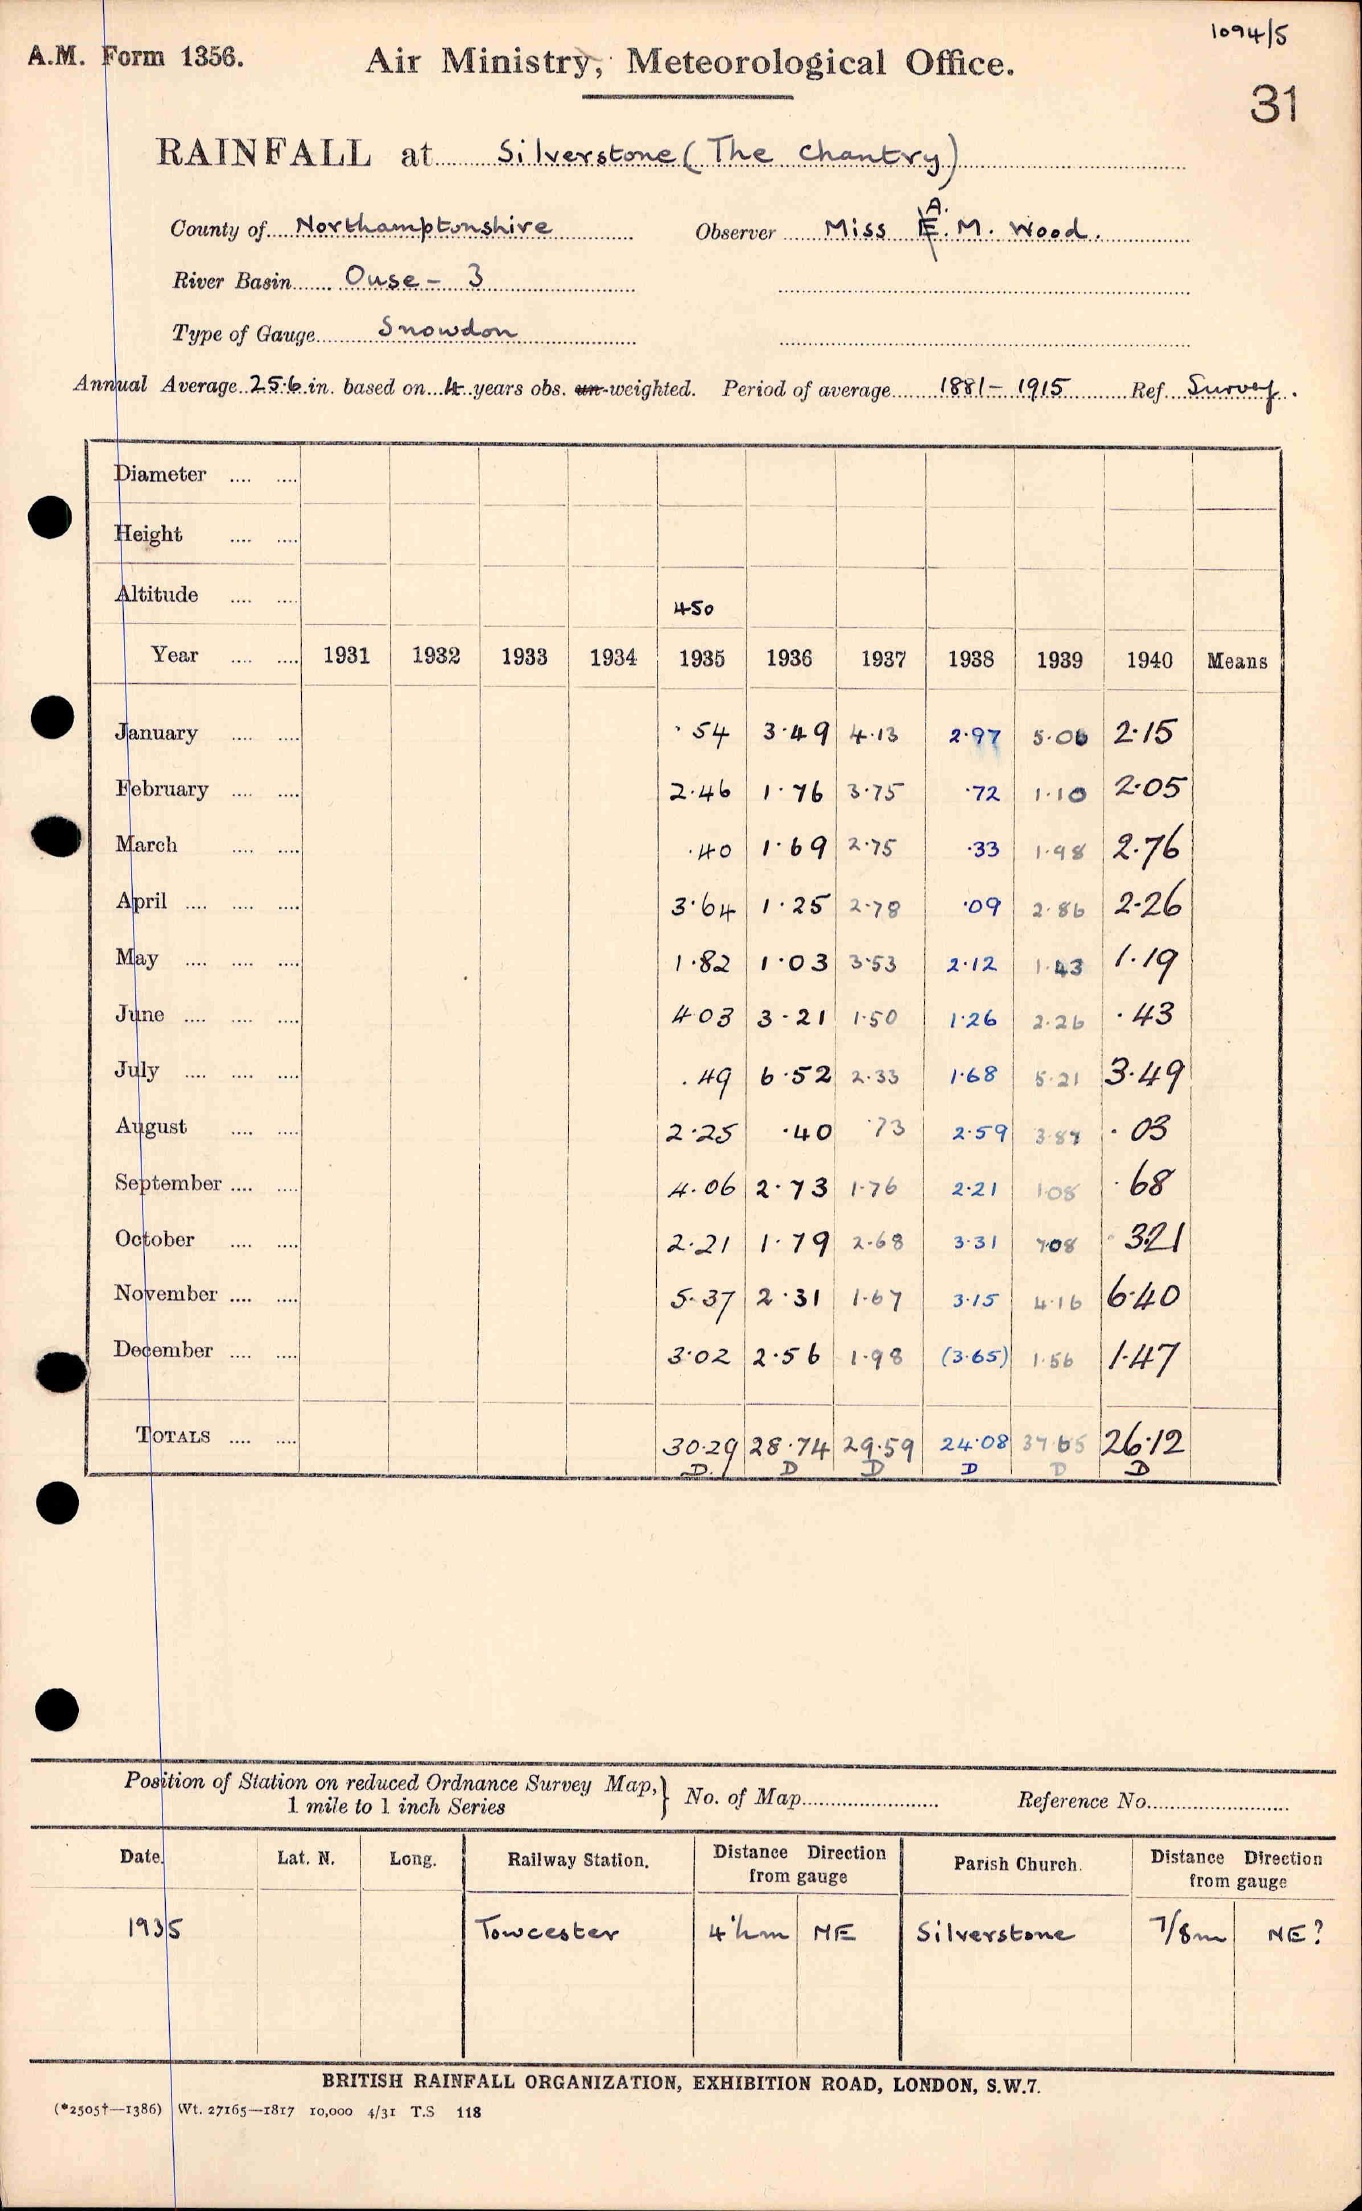 1094/5
A.M. Form 1356. Air Ministry, Meteorological Office.
31
RAINFALL at Silverstone (The Chantry)
County of Northamptonshire Observer Miss E. A. M. Wood.
River Basin Ouse - 3
Type of Gauge Snowdon
Annual Average 25.6 in. based on 4 years obs. un-weighted. Period of average 1881 - 1915 Ref. Survey.
Diameter .... ....
Height .... ....
Altitude .... .... 450
Year .... .... 1931 1932 1933 1934 1935 1936 1937 1938 1939 1940 Means
January .... .... ·54 3·49 4·13 2·97 5·06 2·15
February .... .... 2·46 1·76 3·75 ·72 1·10 2·05
March .... .... ·40 1·69 2·75 ·33 1·98 2·76
April .... .... .... 3·64 1·25 2·78 ·09 2·86 2·26
May .... .... .... 1·82 1·03 3·53 2·12 1·43 1·19
June .... .... .... 4 03 3·21 1·50 1·26 2·26 ·43
July .... .... .... ·49 6·52 2·33 1·68 5·21 3·49
August .... .... 2·25 ·40 ·73 2·59 3·87 ·03
September .... .... 4·06 2·73 1·76 2·21 1·08 ·68
October .... .... 2·21 1·79 2·68 3·31 7·08 3·21
November .... .... 5·37 2·31 1·67 3·15 4·16 6·40
December .... .... 3·02 2·56 1·98 (3·65) 1·56 1·47
Totals .... .... 30·29 28·74 29·59 24·08 37·65 26·12
D. D D D D D
Position of Station on reduced Ordnance Survey Map, 1 mile to 1 inch Series } No. of Map Reference No.
Date. Lat. N. Long. Railway Station. Distance Direction from gauge Parish Church. Distance Direction from gauge
1935 Towcester 4½m NE Silverstone 7/8m NE?
BRITISH RAINFALL ORGANIZATION, EXHIBITION ROAD, LONDON, S.W.7.
(*2505†—1386) Wt. 27165—1817 10,000 4/31 T.S 118